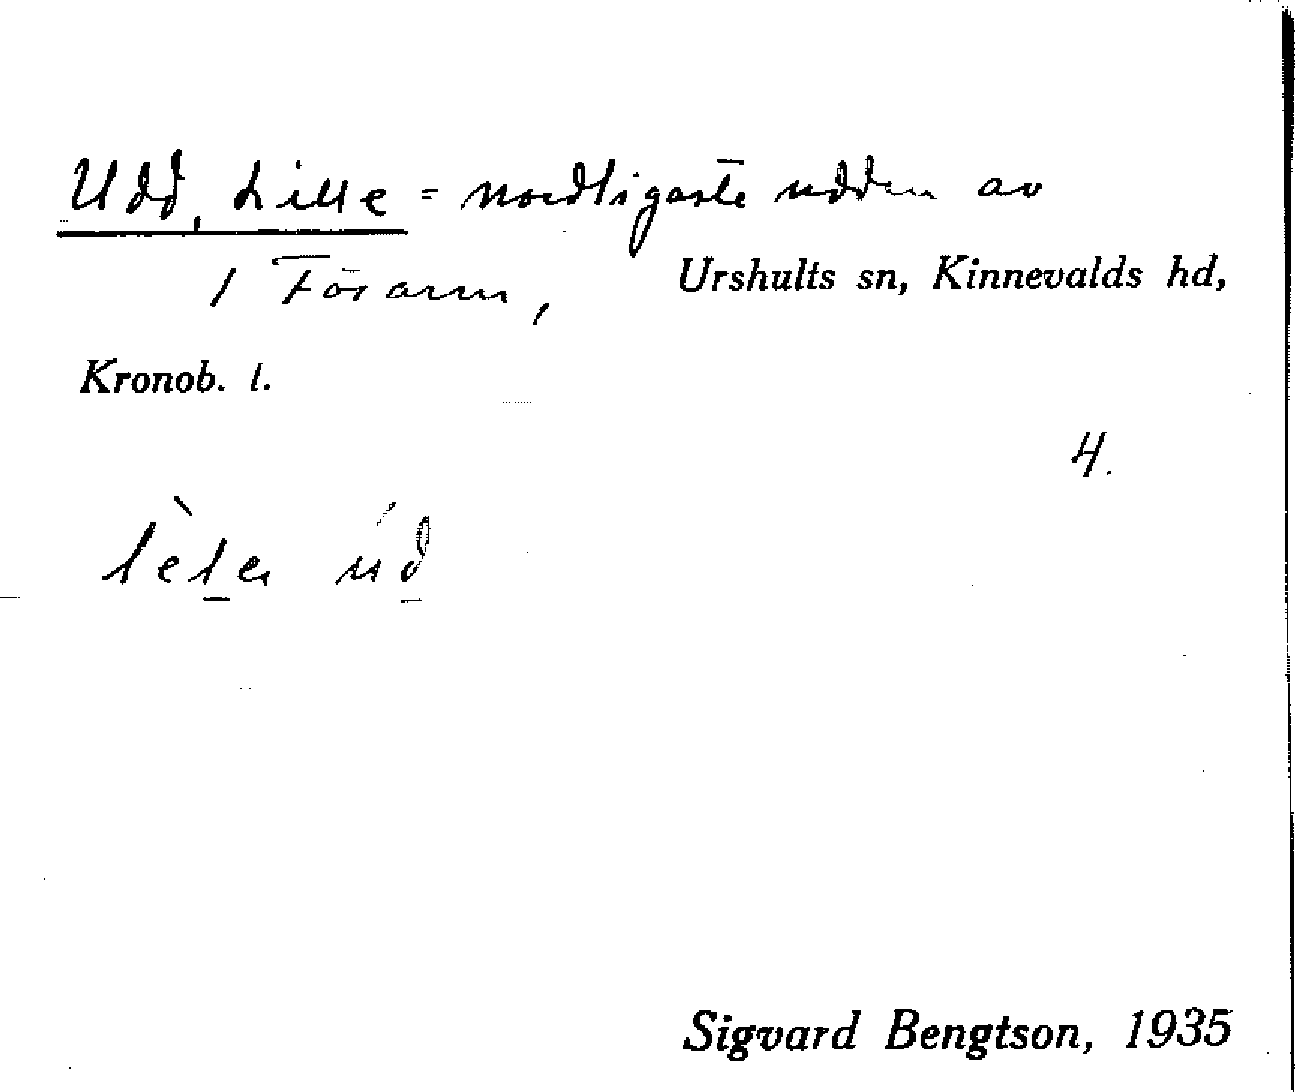 Udd, Lille = nordligaste udden av
1 Föramn,
Urshults sn, Kinnevalds hd,
Kronob. l.
4.
Sigvard Bengtson, 1935